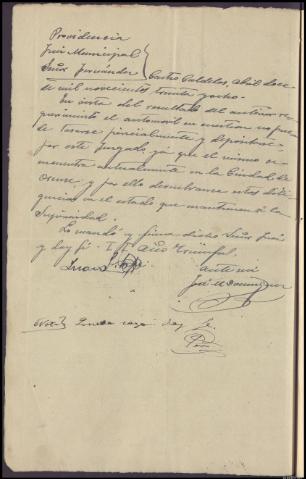 Providencia
Juez Municipal
Señor Fernández } Castro Caldelas, abril doce
de mil novecientos treinta y ocho.
En vista del resultado del anterior re-
querimiento el automóvil en cuestion no pue-
de tasarse pericialmente y depositar-
por este Juzgado, ya que el mismo se en-
cuentra actualmente en la Ciudad de
Orense, y por ello devuelvanse estas dili-
gencias en el estado que mantienen a la
Superioridad.
Lo mandó y firma dicho Señor Juez
y doy fé. II Año Triunfal.
Ante mi
José M Dominguez
Nota} Queda doy fe.